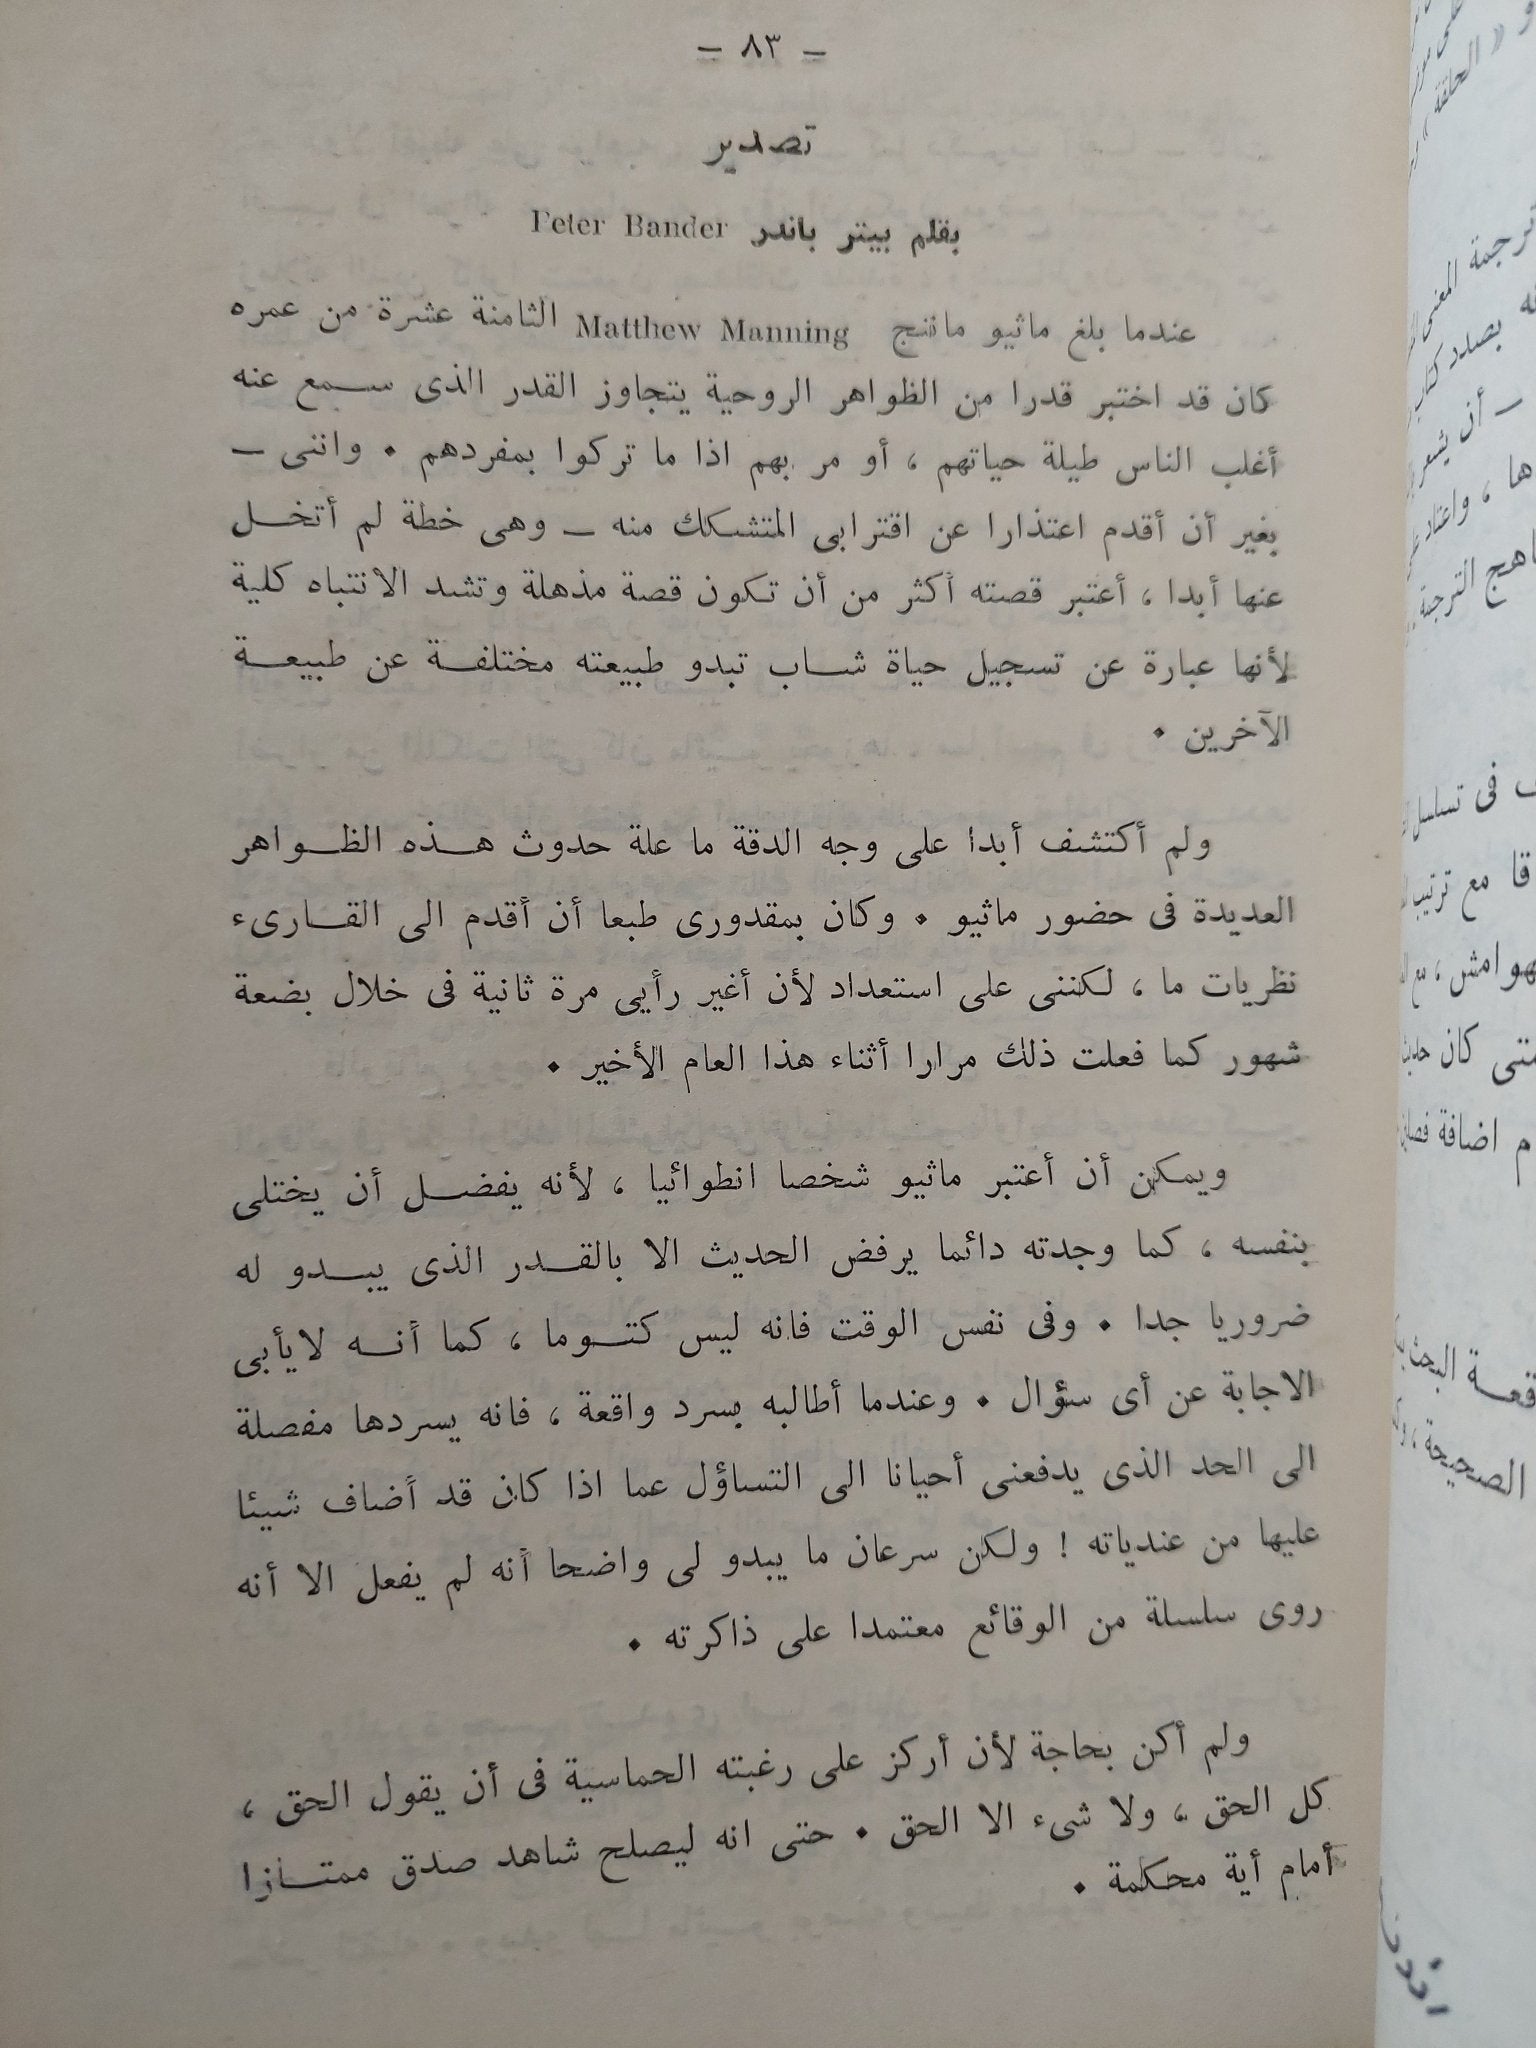 – ٨٣ –
تصدير
بقلم بيتر باندر Peter Bander
عندما بلغ ماثيو ماننج Matthew Manning الثامنة عشرة من عمره
كان قد اختبر قدرا من الظواهر الروحية يتجاوز القدر الذى سمع عنه
أغلب الناس طيلة حياتهم ، أو مر بهم اذا ما تركوا بمفردهم . واننى –
بغير أن أقدم اعتذارا عن اقترابى المتشكك منه – وهى خطة لم أتخل
عنها أبدا ، أعتبر قصته أكثر من أن تكون قصة مذهلة وتشد الانتباه كلية
لأنها عبارة عن تسجيل حياة شاب تبدو طبيعته مختلفة عن طبيعة
الآخرين .
ولم أكتشف أبدا على وجه الدقة ما علة حدوث هذه الظواهر
العديدة فى حضور ماثيو . وكان بمقدورى طبعا أن أقدم الى القارىء
نظريات ما ، لكننى على استعداد لأن أغير رأيى مرة ثانية فى خلال بضعة
شهور كما فعلت ذلك مرارا أثناء هذا العام الأخير .
ويمكن أن أعتبر ماثيو شخصا انطوائيا ، لأنه يفضل أن يختلى
بنفسه ، كما وجدته دائما يرفض الحديث الا بالقدر الذى يبدو له
ضروريا جدا . وفى نفس الوقت فانه ليس كتوما ، كما أنه لايأبى
الاجابة عن أى سؤال . وعندما أطالبه بسرد واقعة ، فانه يسردها مفصلة
الى الحد الذى يدفعنى أحيانا الى التساؤل عما اذا كان قد أضاف شيئا
عليها من عندياته ! ولكن سرعان ما يبدو لى واضحا أنه لم يفعل الا أنه
روى سلسلة من الوقائع معتمدا على ذاكرته .
ولم أكن بحاجة لأن أركز على رغبته الحماسية فى أن يقول الحق ،
كل الحق ، ولا شىء الا الحق . حتى انه ليصلح شاهد صدق ممتازا
أمام أية محكمة .
« الحلقة
ترجمة المعنى
بصدد كتاب
– أن يشعر
ها ، واعتاد
الترجمة
فى تسلسل
قا مع ترتيب
هوامش ، مع
متى كان
م اضافة
البحث
الصحيحة ،